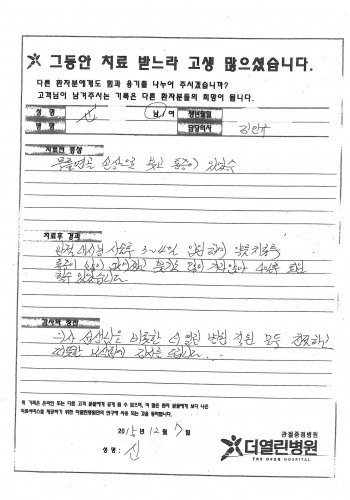 그동안 치료 받느라 고생 많으셨습니다.
다른 환자분에게도 힘과 용기를 나누어 주시겠습니까?
고객님이 남겨주시는 기록은 다른 환자분들의 희망이 됩니다.
성 명 신 남/여 생년월일
병 명 담당의사
치료전 증상
무릎연골 손상으로 붓고 통증이 있었음
치료후 경과
관절내시경 시술후 3~4일 입원하여 약물치료후
통증이 많이
할수 있었습니다.
감사의 말씀
의사 선생님을 비롯한 더 열린 병원 직원 모두 친절하고
따뜻한 감사를 드립니다...
위 기록은 온라인 또는 다른 고객 분들에게 공개 될 수 있으며, 이 들은 환자 분들에게 보다 나은
의료서비스를 제공하기 위한 더열린병원만의 연구에 사용 되는 것을 동의합니다.
2015년 12월 7일
성명 : 신
관절중점병원
더열린병원
THE OPEN HOSPITAL